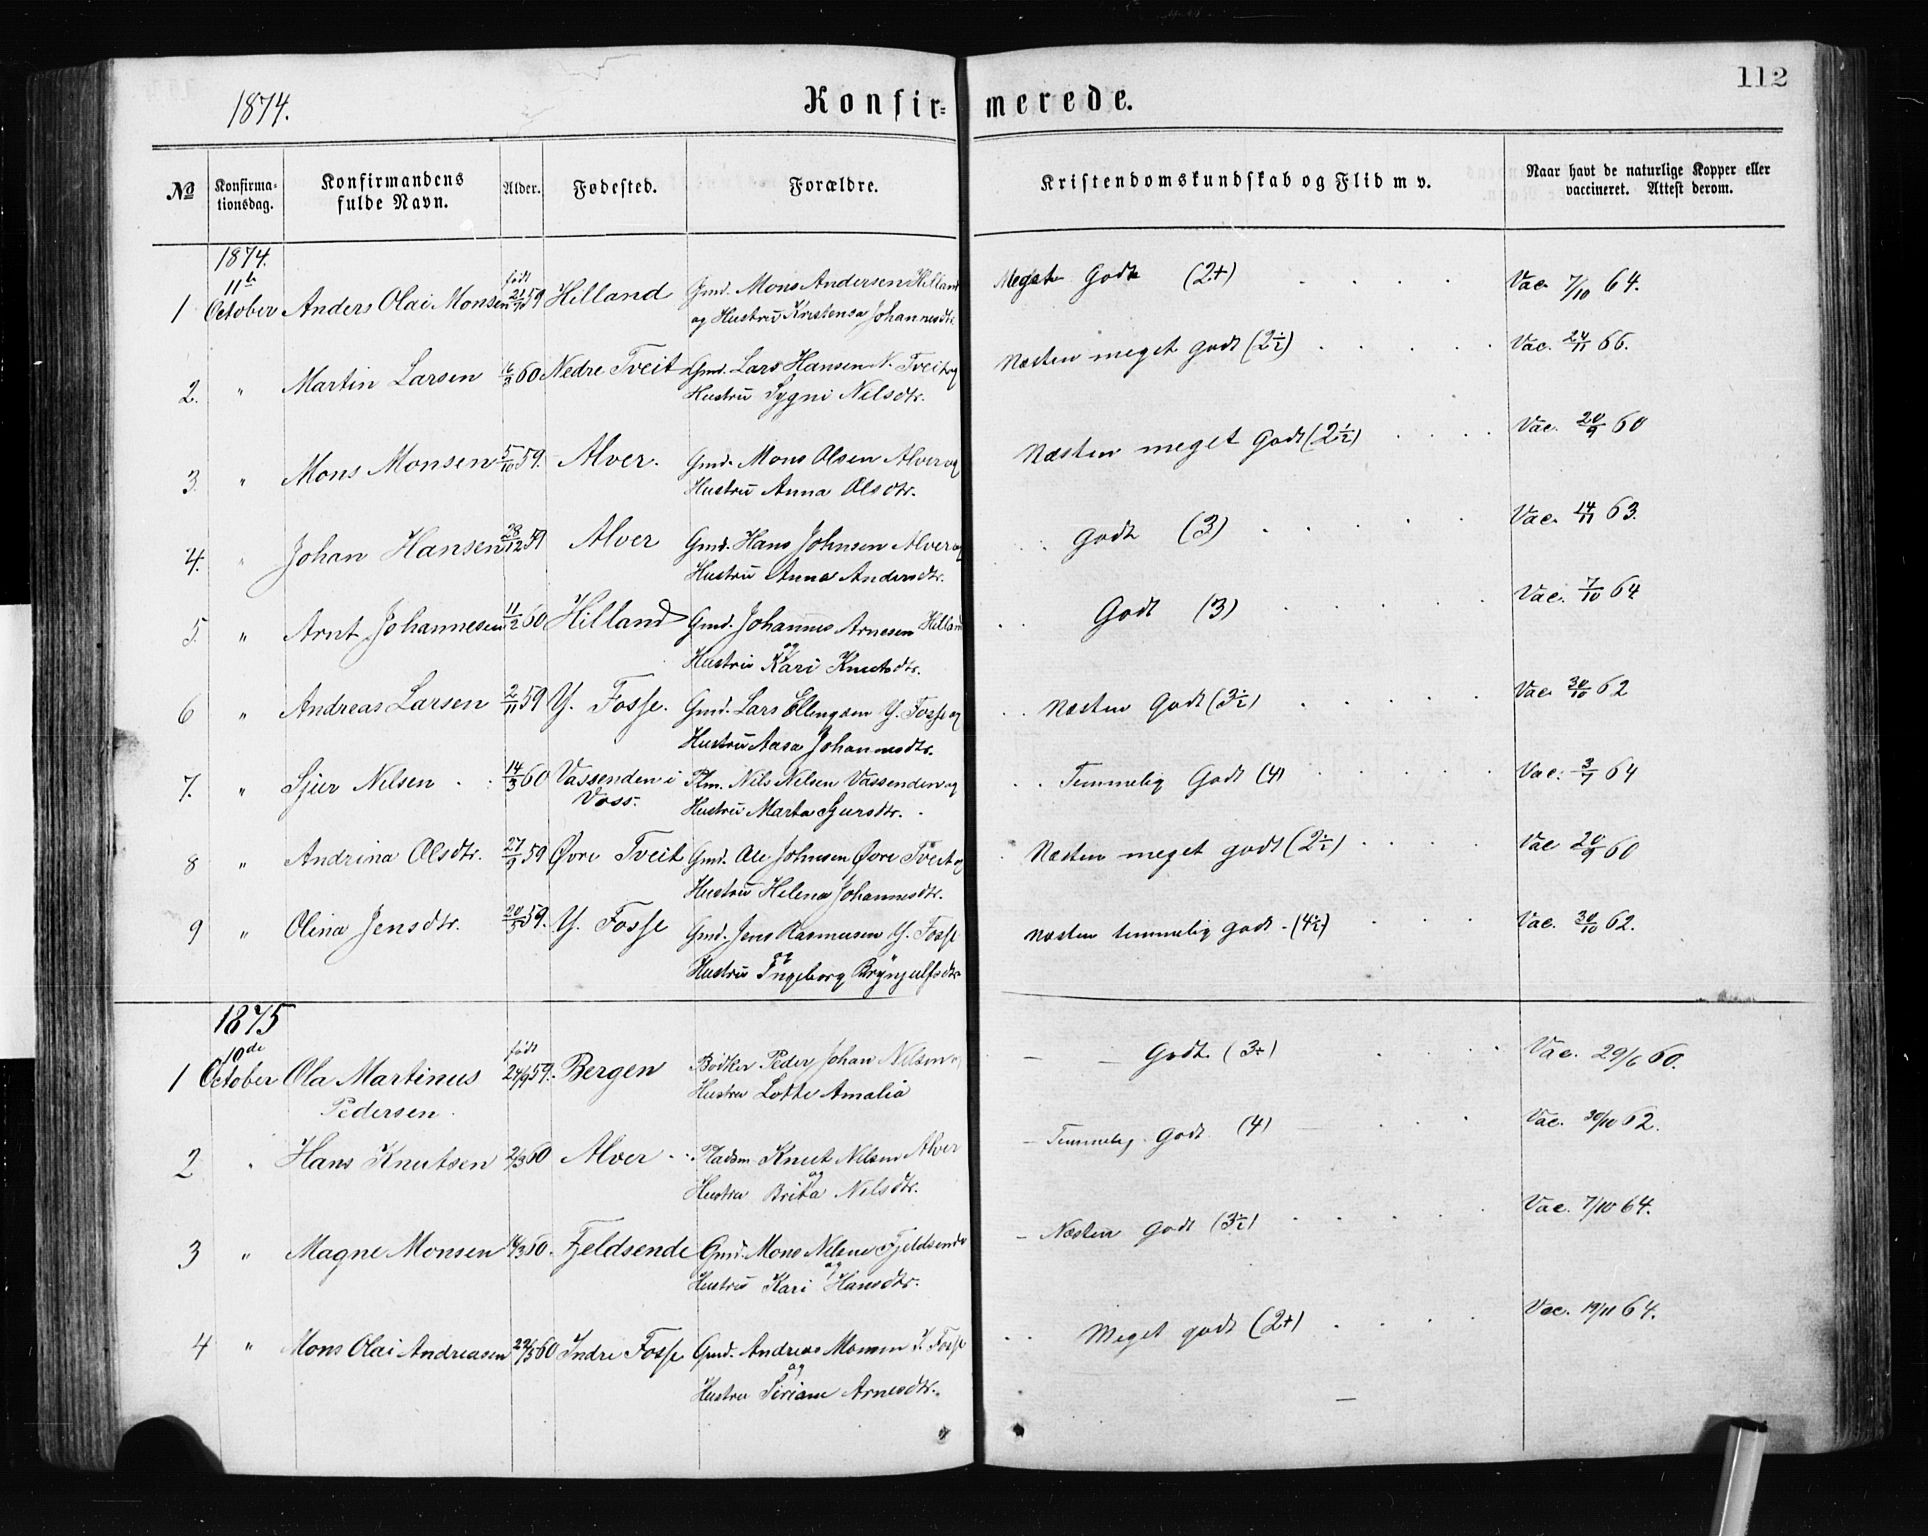 112
1874.
Konfirmerede.
No
Konfirma-
tionsdag.
Konfirmandens
fulde Navn.
Alder.
Fødested.
Forældre.
Kristendomskundskab og Flid m v.
Naar havt de naturlige Kopper eller
vaccineret. Attest derom.
1874.
1 11te October Anders Olai Monsen født 21/9 59 Hilland Gmd. Mons Andersen Hilland Meget Godt (2+) Vac. 7/10 64.
og Hustru Kristensa Johannesdtr
2. " Martin Larsen 60 Nedre Tveit Gmd. Lars Hansen N. Tveit og Næsten meget godt (2½) Vac. 24/11 66.
Hustru Sygni Nilsdtr.
3. " Mons Monsen 5/10 59. Alver. Gmd. Mons Olsen Alver og Næsten meget Godt (2½) Vac. 20/9 60
Hustru Anna Olsdtr.
4. " Johan Hansen 28/12 59 Alver Gmd. Hans Johnsen Alver og Godt (3) Vac. 14/11 63.
Hustru Anna Andersdtr.
5. " Arnt Johannesen 11/2 60 Hilland Gmd. Johannes Arnesen Hilland Godt (3) Vac. 7/10 64
og
Hustru Kari Knutsdtr.
6 " Andreas Larsen 2/11 59 Y. Fosse. Gmd. Lars Ellingsen Y. Fosse og Næsten Godt (3½) Vac. 30/10 62
Hustru Aasa Johannesdtr.
7. " Sjur Nilsen 14/3 60 Vassenden i Plm. Nils Nilsen Vassenden og Temmelig Godt (4) Vac. 64
Voss. Hustru Marta Sjursdtr.
8 " Andrina Olsdtr. 27/9 59 Øvre Tveit Gmd. Ole Johnsen Øvre Tveit og Næsten meget godt (2½) Vac 20/9 60
Hustru Helena Johannesdtr.
9 " Olina Jensdtr. 59. Y. Fosse Gmd. Jens Rasmusen Y. Fosse Næsten temmelig godt. (4½) Vac. 30/10 62.
og
Hustru Ingeborg Brynjulfsdtr
1875
1 10de October Ola Martinus født 24/9 59. Bergen Bødker Peder Johan Nilsen og Godt. (3+) Vac. 29/6 60.
Pedersen. Hustru Lotte Amalia
2 " Hans Knutsen 2/3 60 Alver Pladsm. Knut Nilsen Alver Temmelig Godt (4) Vac. 30/10 62.
og
Hustru Brita Nilsdtr.
3 " Magne Monsen 60. Fjeldsende Gmd. Mons Nilsen Fjeldsende Næsten Godt (3½) Vac. 7/10 64.
og
Hustru Kari Hansdtr.
4 " Mons Olai Andreasen 60 Indre Fosse Gmd. Andreas Monsen I. Fosse Meget godt (2+) Vac. 19/11 64.
og
Hustru Siriane Arnesdtr.